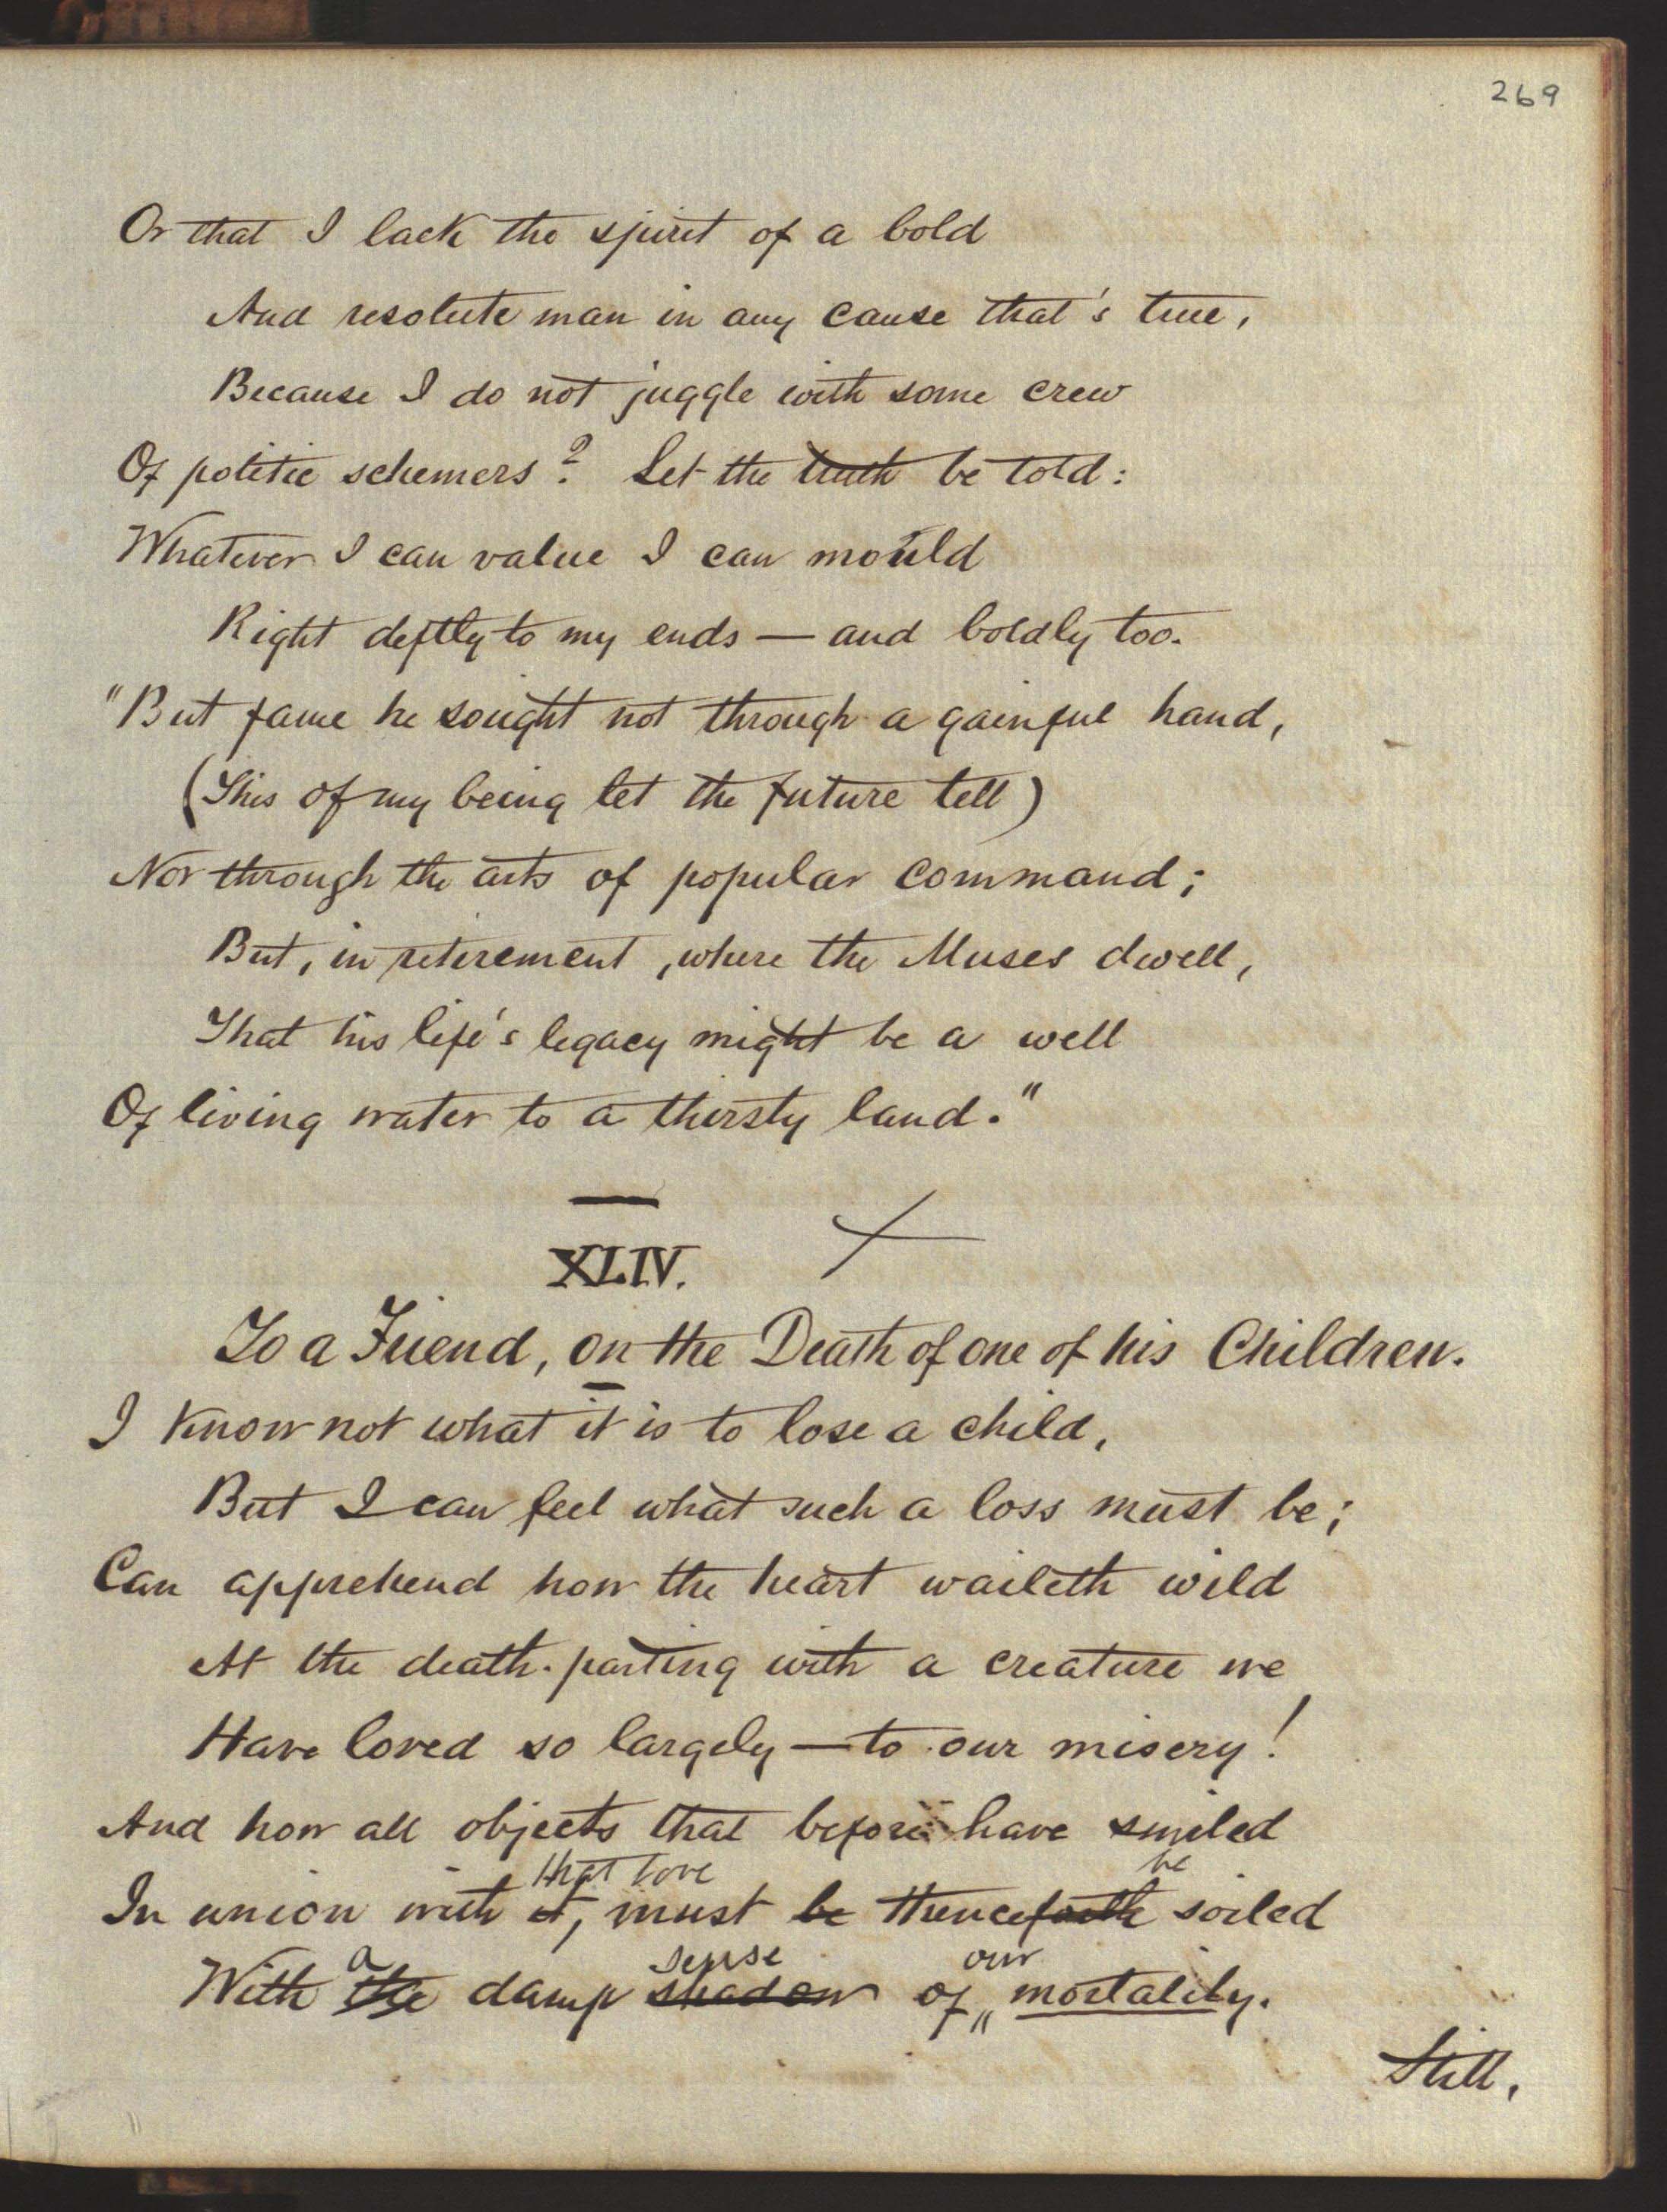 269
Or that I lack the spirit of a bold
And resolute man in any cause that's true,
Because I do not juggle with some crew
Of politic schemers? Let the truth be told:
Whatever I can value I can mould
Right deftly to my ends — and boldly too.
"But fame he sought not through a gainful hand,
(This of my being let the future tell)
Nor through the arts of popular command;
But, in retirement, where the Muses dwell,
That his life's legacy might be a well
Of living water to a thirsty land."
XLIV.
To a Friend, on the Death of one of his Children.
I know not what it is to lose a child,
But I can feel what such a loss must be;
Can apprehend how the heart waileth wild
At the death-parting with a creature we
Have loved so largely — to our misery!
And how all objects that before have smiled
that love be
In union with it, must be thenceforth soiled
a sense our
With the damp shadow of mortality.
Still,